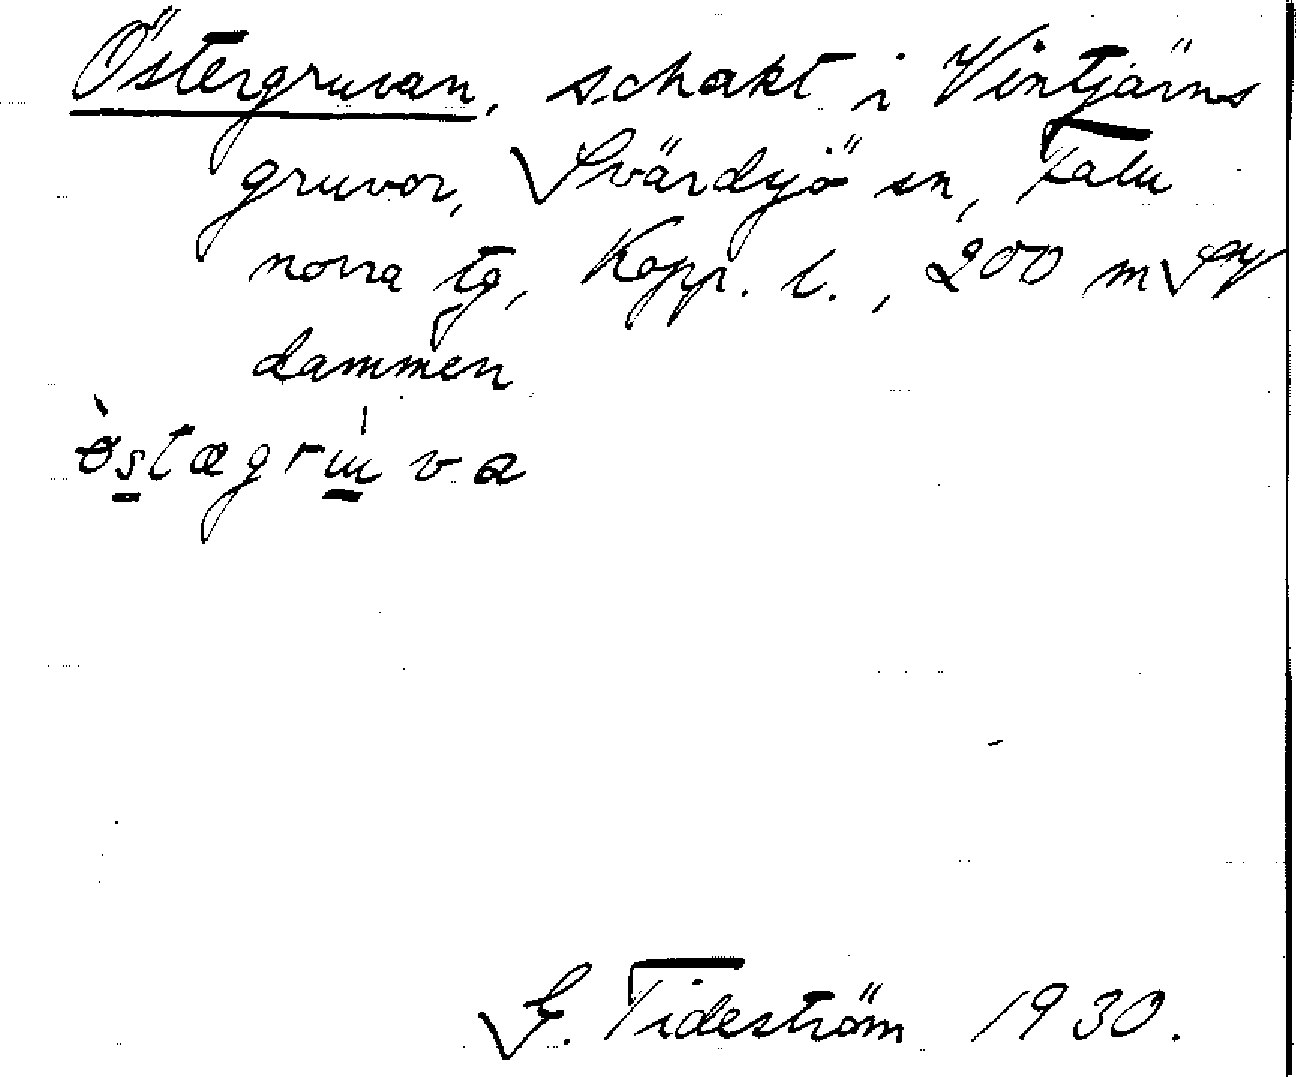 Östergruvan, schakt i Vintjärns
gruvor, Svärdsjö sn, Falu
norra tg, Kopp. l., 200 m
dammen
G. Tideström 1930.